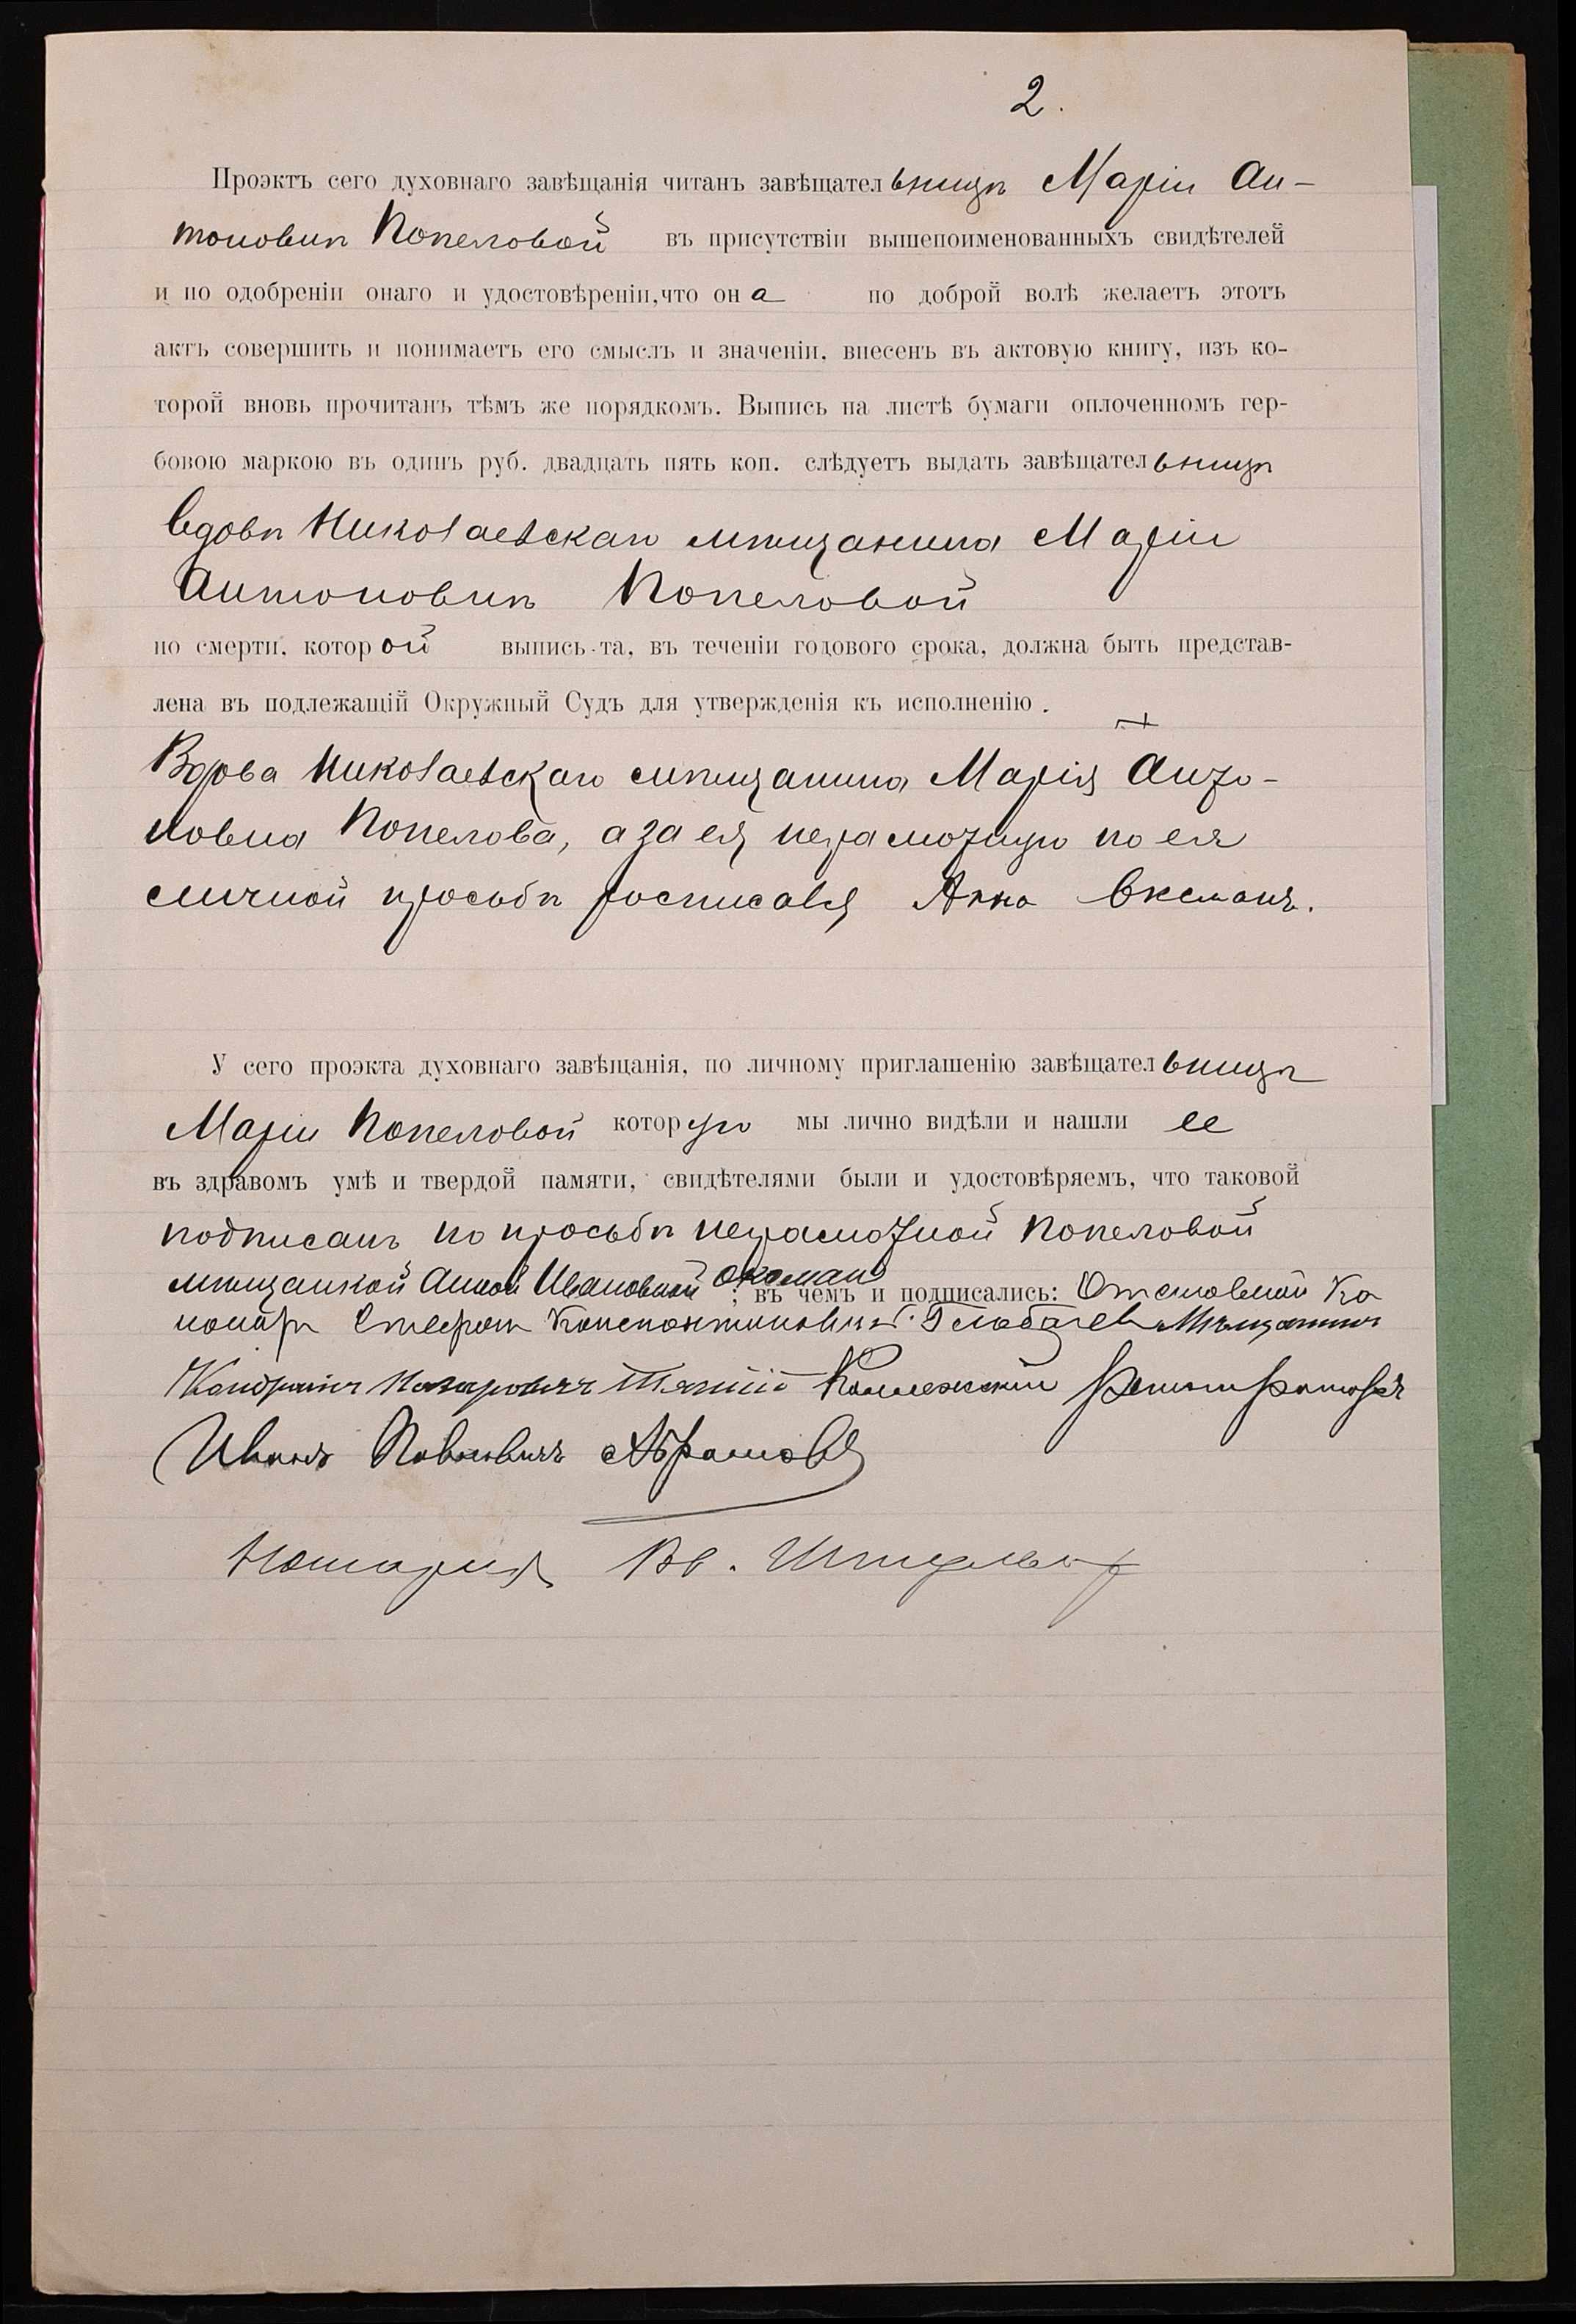 2.
Проэктъ сего духовнаго завѣщанія читанъ завѣщательницѣ Маріи Ан-
тоновнѣ Попеловой въ присутствіи вышепоименованныхъ свидѣтелей
и по одобреніи онаго и удостовѣреніи, что она по доброй волѣ желаетъ этотъ
актъ совершить и понимаетъ его смыслъ и значеніи, внесенъ въ актовую книгу, изъ ко-
торой вновь прочитанъ тѣмъ же порядкомъ. Выпись на листѣ бумаги оплоченномъ гер-
бовою маркою въ одинъ руб. двадцать пять коп. слѣдуетъ выдать завѣщательницѣ
вдовѣ Николаевскаго мѣщанина Маріи
Антоновнѣ Попеловой
по смерти, которой выпись та, въ теченіи годового срока, должна быть представ-
лена въ подлежащій Окружный Судъ для утвержденія къ исполненію.
Вдова Николаевскаго мѣщанина Марія Анто-
новна Попелова, а за ея неграмотную по ея
личной просьбѣ росписался Анна Оксманъ.
У сего проэкта духовнаго завѣщанія, по личному приглашенію завѣщательницѣ
Маріи Попеловой которую мы лично видѣли и нашли ее
въ здравомъ умѣ и твердой памяти, свидѣтелями были и удостовѣряемъ, что таковой
подписанъ по просьбѣ неграмотной Попеловой
мѣщанкой Анной Ивановной Оксманъ; въ чемъ и подписались: Отставной Ка
нониръ Константиновичъ Мѣщанинъ
Кондратъ Назаровичъ Коллежскій Регистраторъ
Иванъ Павловичъ Абрамовъ
Нотаріусъ Вл.